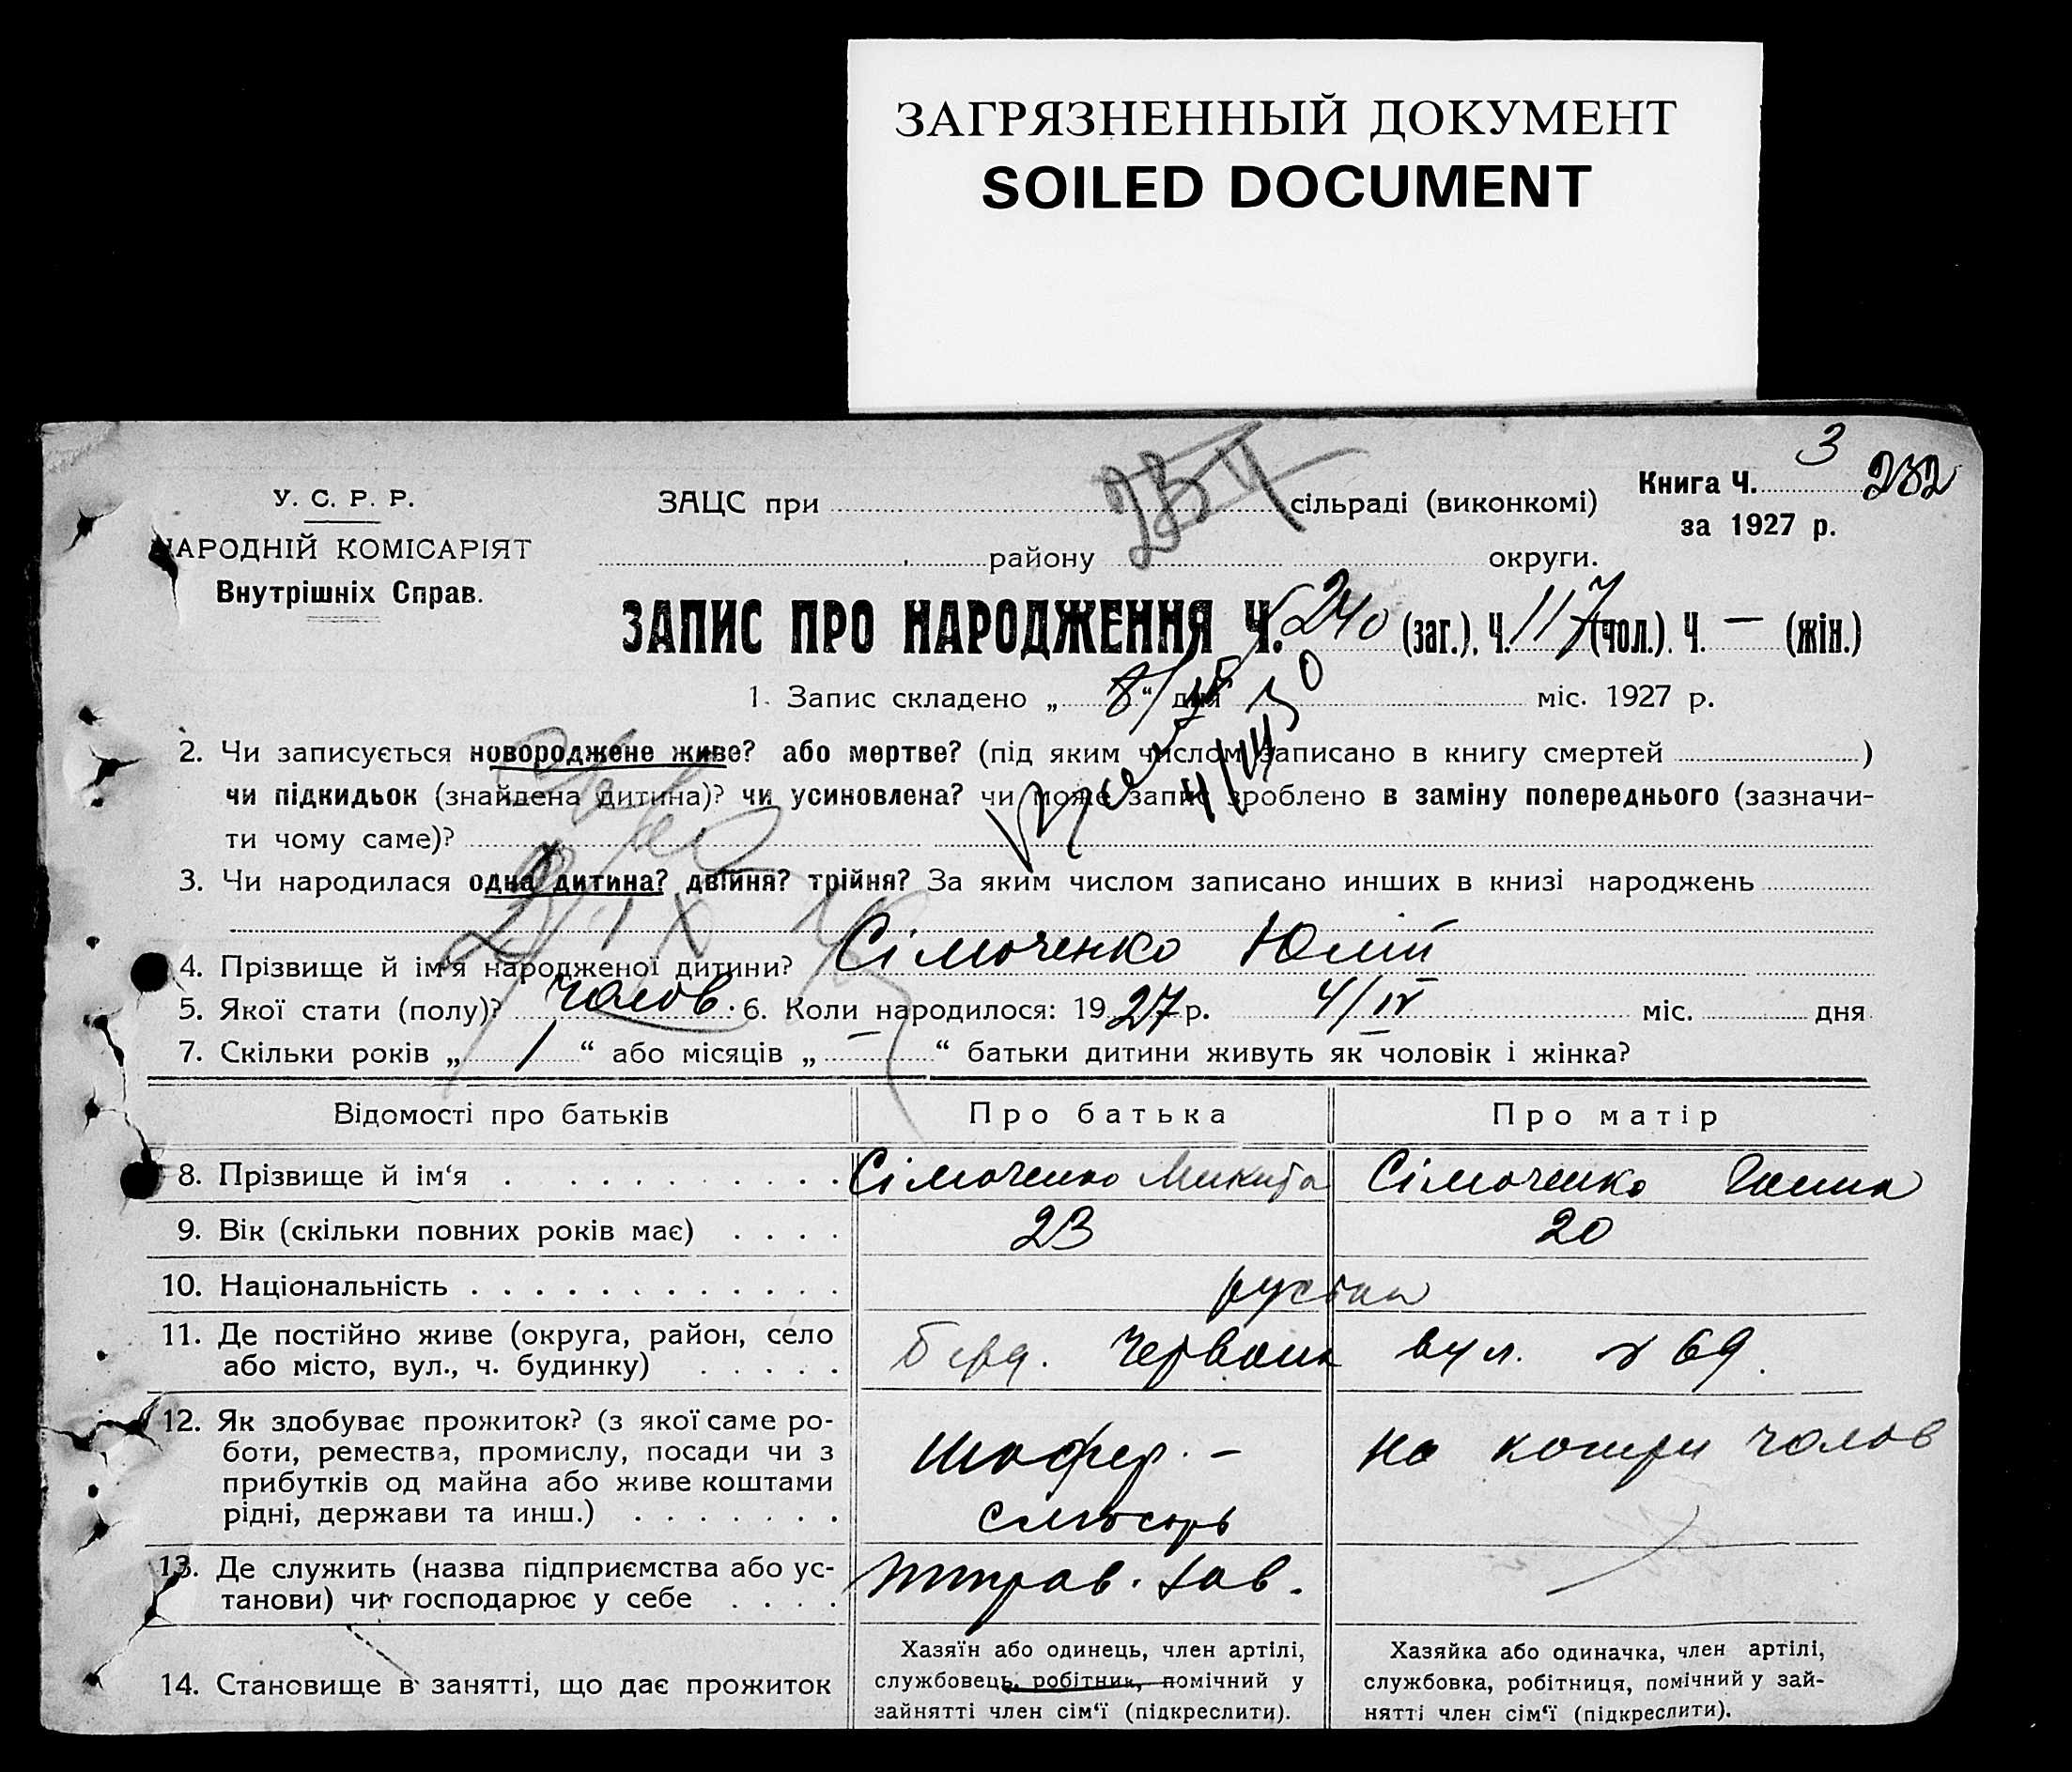 ЗАГРЯЗНЕННЫЙ ДОКУМЕНТ
SOILED DOCUMENT
3
232
У. С. Р. Р.
НАРОДНІЙ КОМІСАРІЯТ
Внутрішніх Справ.
ЗАЦС при сільраді (виконкомі)
району округи.
Книга Ч.
за 1927 р.
ЗАПИС ПРО НАРОДЖЕННЯ Ч. 240 (заг.), Ч. 117 (чол.). Ч. — (жін.)
1. Запис складено „ 8/ “ дня міс. 1927 р.
2. Чи записується новороджене живе? або мертве? (під яким числом записано в книгу смертей )
чи підкидьок (знайдена дитина)? чи усиновлена? чи може запис зроблено в заміну попереднього (зазначи-
ти чому саме)?
3. Чи народилася одна дитина? двійня? трійня? За яким числом записано инших в книзі народжень
4. Прізвище й ім'я народженої дитини? Сімоченко Юлій
5. Якої стати (полу)? Чолов. 6. Коли народилося: 1927 р. 4/IV міс. дня
7. Скільки років „ 1 “ або місяців „ — “ батьки дитини живуть як чоловік і жінка?
Відомості про батьків Про батька Про матір
8. Прізвище й ім‘я Сімоченко Микита Сімоченко Ганна
9. Вік (скільки повних років має) 23 20
10. Національність
11. Де постійно живе (округа, район, село
або місто, вул., ч. будинку) Берд. Червона вул. № 69.
12. Як здобуває прожиток? (з якої саме ро-
боти, ремества, промислу, посади чи з
прибутків од майна або живе коштами
рідні, держави та инш.)
шофер. –
слюсарь
на кошти чолов
13. Де служить (назва підприємства або ус-
танови) чи господарює у себе зав.
14. Становище в занятті, що дає прожиток
Хазяїн або одинець, член артілі,
службовець, робітник, помічний у
зайнятті член сім‘ї (підкреслити).
Хазяйка або одиначка, член артілі,
службовка, робітниця, помічний у зай-
нятті член сім‘ї (підкреслити).